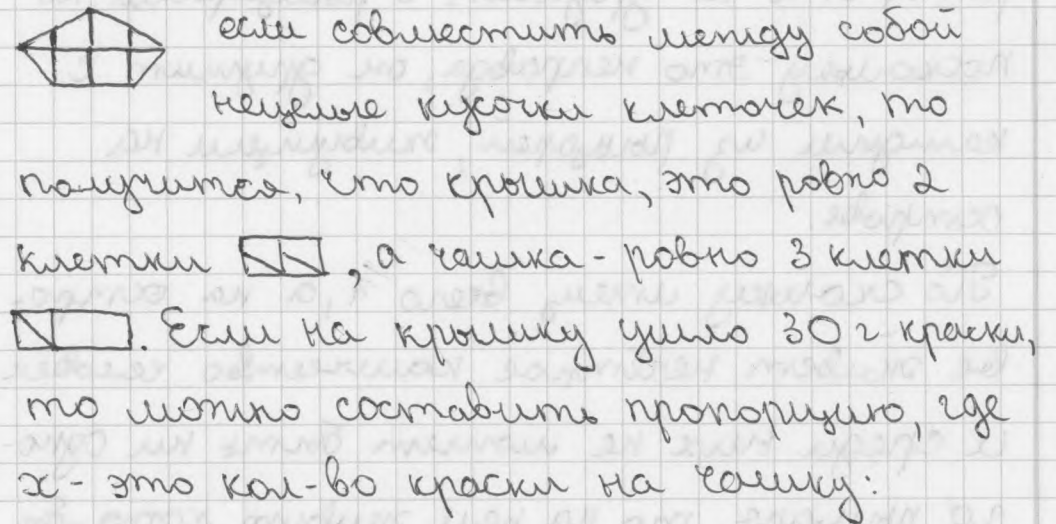 если совместить между собой
нецелые кусочки клеточек, то
получится, что крышка, это ровно 2
клетки , а чашка - ровно 3 клетки
. Если на крышку ушло 30 г краски,
то можно составить пропорцию, где
x - это кол-во краски на чашку: